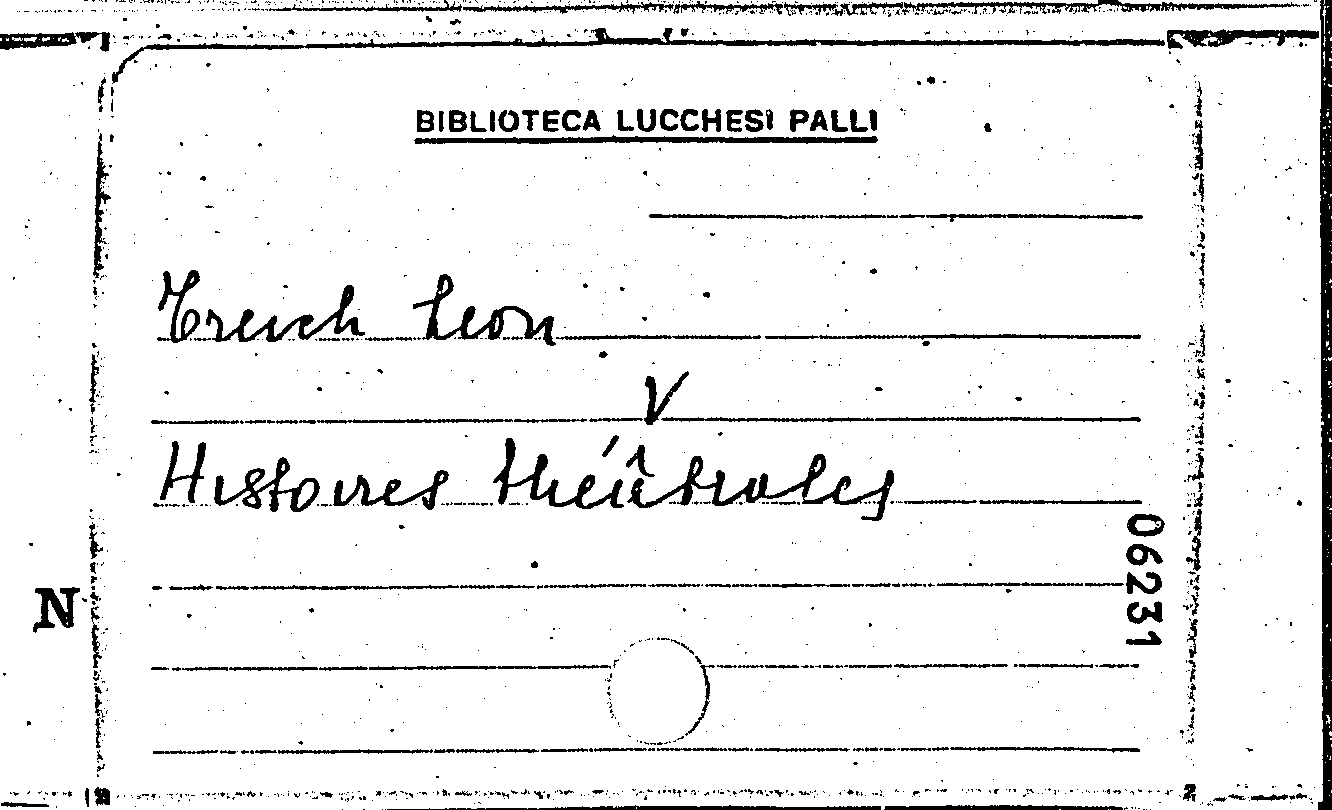 BIBLIOTECA LUCCHESI PALLI
Treich Leon
V
Histoires théâtrales
06231
N